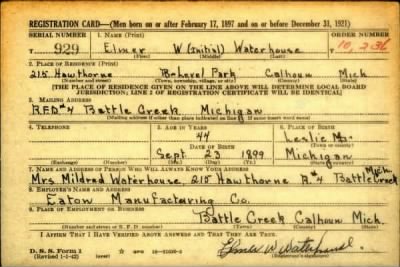 REGISTRATION CARD—(Men born on or after February 17, 1897 and on or before December 31, 1921)
SERIAL NUMBER 1. NAME (Print) ORDER NUMBER
929 Elmer W (Initial) Waterhouse
(First) (Middle) (Last)
2. PLACE OF RESIDENCE (Print)
215 Hawthorne B-Level Park Calhoun Mich
(Number and street) (Town, township, village, or city) (County) (State)
[THE PLACE OF RESIDENCE GIVEN ON THE LINE ABOVE WILL DETERMINE LOCAL BOARD
JURISDICTION; LINE 2 OF REGISTRATION CERTIFICATE WILL BE IDENTICAL]
3. MAILING ADDRESS
R.F.D #4 Battle Creek Michigan
(Mailing address if other than place indicated on line 2. If same insert word same)
4. TELEPHONE 5. AGE IN YEARS 6. PLACE OF BIRTH
44 Leslie
DATE OF BIRTH (Town or county)
Sept. 23 1899 Michigan
(Exchange) (Number) (Mo.) (Day) (Yr.) (State or country)
7. NAME AND ADDRESS OF PERSON WHO WILL ALWAYS KNOW YOUR ADDRESS
Mrs Mildred Waterhouse, 215 Hawthorne R.#4 Battle Creek Mich
8. EMPLOYER'S NAME AND ADDRESS
Eaton Manufacturing Co.
9. PLACE OF EMPLOYMENT OR BUSINESS
Battle Creek Calhoun Mich.
(Number and street or R. F. D. number) (Town) (County) (State)
I AFFIRM THAT I HAVE VERIFIED ABOVE ANSWERS AND THAT THEY ARE TRUE.
D. S. S. Form 1 Elmer W Waterhouse
(Revised 1-1-42) (over) (Registrant's signature)